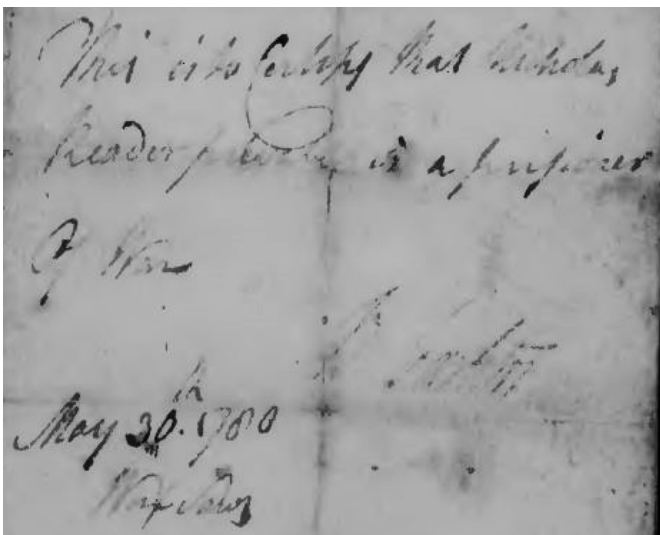 This is to Certify that Nicholas
Reader private is a prisoner
Of War
May 30th. 1780
Wax Saws